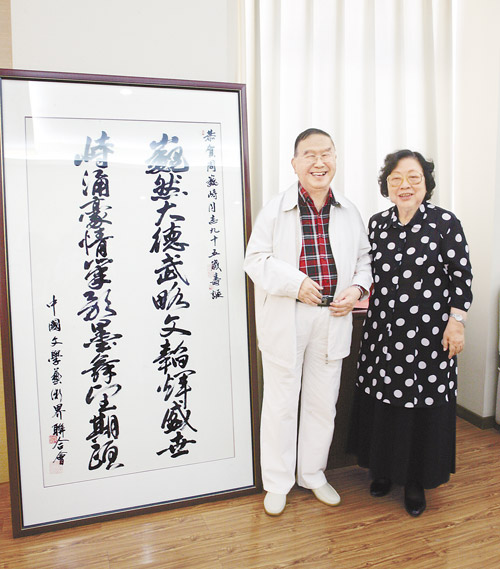 恭賀周巍峙同志九十五歲壽誕
巍然大德武略文韜輝盛世
峙涌豪情筆歌墨舞望期頤
中國文學藝術界聯合會